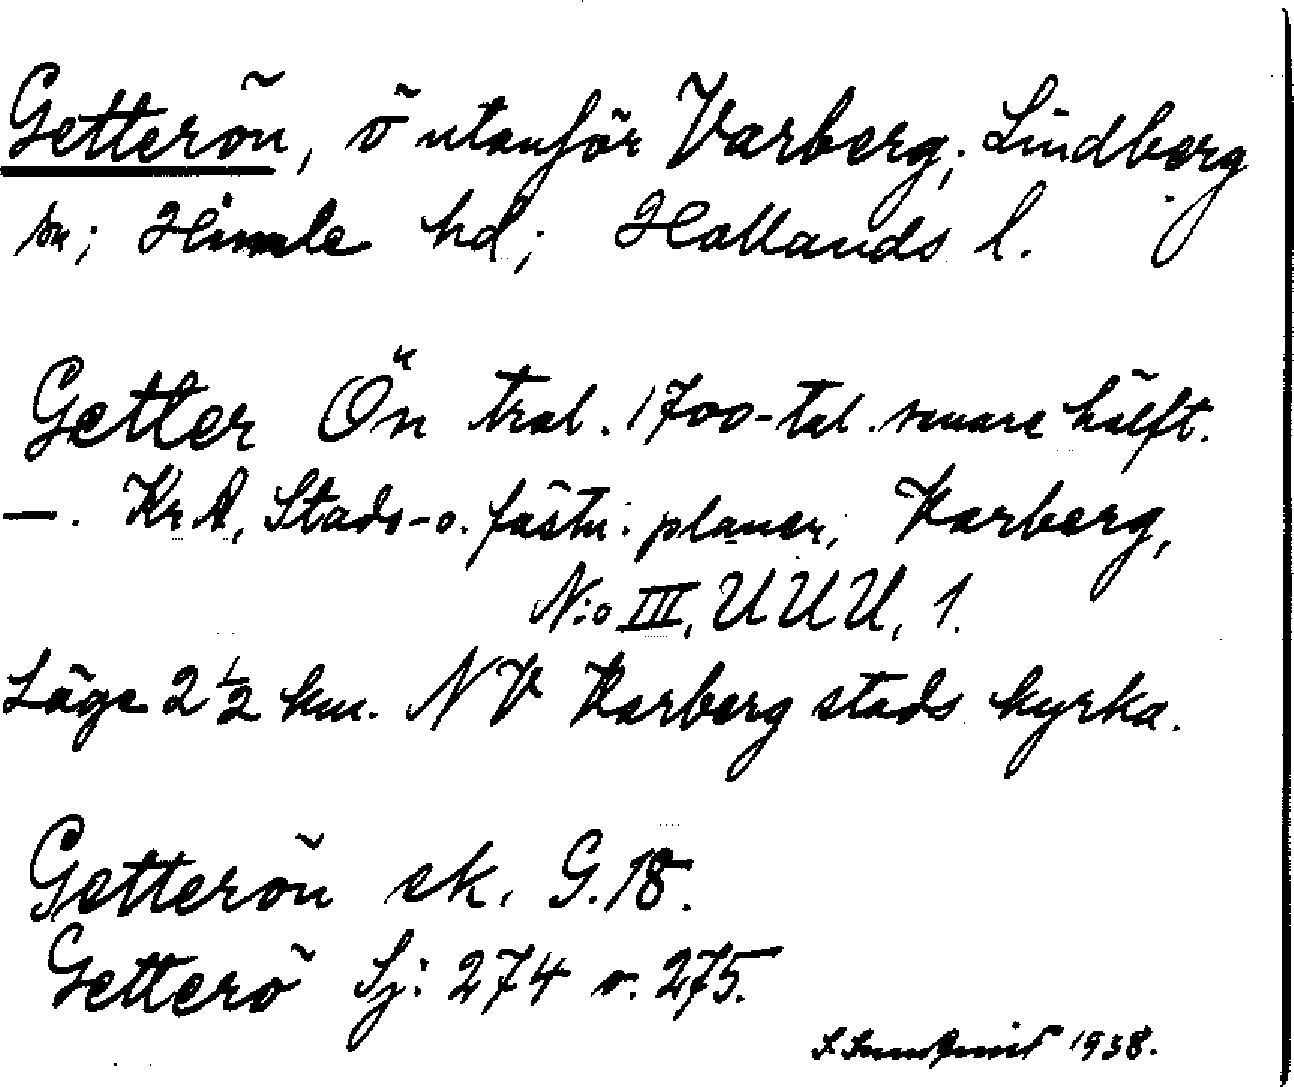 Getterön, ö utanför Varberg; Lindberg
sn; Himle hd; Hallands l.
Getter Ön trol. 1700-tal. senare hälft.
—. KrA, Stads- o. fästn. planer, Varberg,
N:o III, UUU, 1.
Läge 2 1/2 km. NV Varberg stads kyrka.
Getterön ek. G. 18.
Getterö Sj: 274 o. 275.
1938.